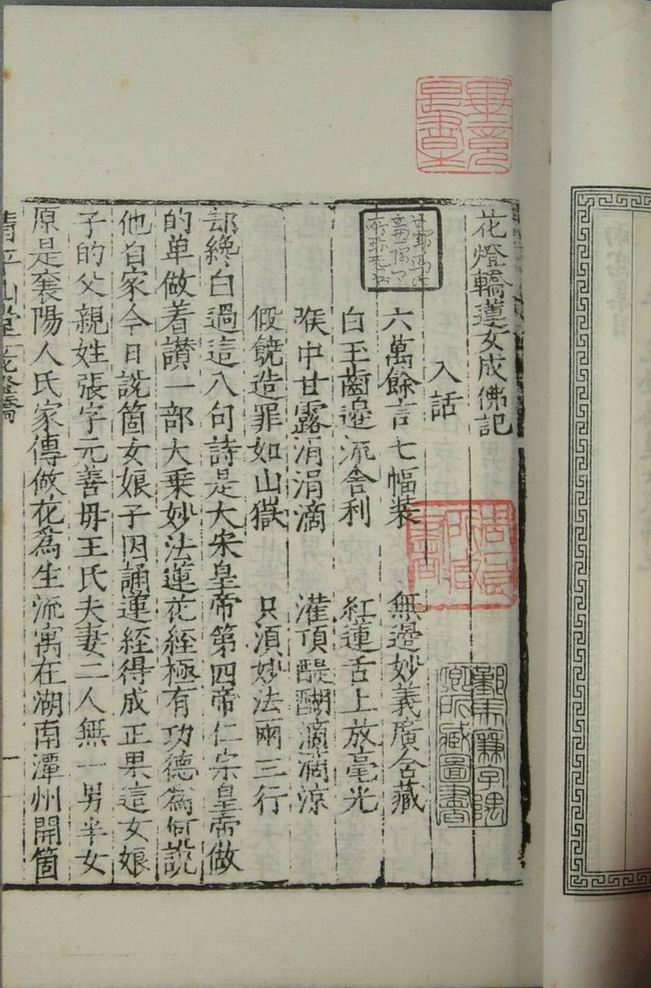 花燈轎蓮女成佛記
入話
六萬餘言七幅裝 無邊妙義廣含藏
白玉齒邊流舍利 紅蓮舌上放毫光
喉中甘露涓涓滴 灌頂醍醐滴滴涼
假饒造罪如山嶽 只須妙法兩三行
却纔白過這八句詩是大宋皇帝第四帝仁宗皇帝做
的單做着讃一部大乗妙法蓮花經極有功德為何說
他自家今日説箇女娘子因誦蓮經得成正果這女娘
子的父親姓張字元善毋王氏夫妻二人無一男半女
原是襄陽人氏家傳做花為生流寓在湖南潭州開箇
清平山堂 花燈轎 一